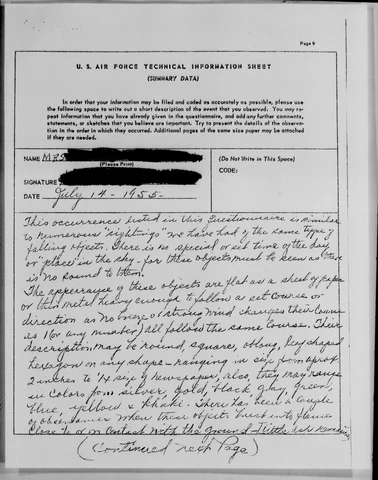 Page 9
U. S. AIR FORCE TECHNICAL INFORMATION SHEET
(SUMMARY DATA)
In order that your information may be filed and coded as accurately as possible, please use
the following space to write out a short description of the event that you observed. You may re-
peat information that you have already given in the questionnaire, and add any further comments,
statements, or sketches that you believe are important. Try to present the details of the observa-
tion in the order in which they occurred. Additional pages of the same size paper may be attached
if they are needed.
NAME MRS
(Please Print)
(Do Not Write in This Space)
CODE:
SIGNATURE
DATE July 14 - 1955 -
This occurrence listed in this Questionnaire is similar
to numerous "sightings" we have had of the same type of
falling objects. There is no special or set time of the day
or "place" in the sky - for these objects must be seen as there
is no sound to them.
The appearance of these objects are flat as a sheet of paper
or thin metal heavy enough to follow a set course or
direction as no breeze or strong wind changes their course
as 1 (or any number) all follow the same course. Their
description may be round, square, oblong, key shaped
hexagon or any shape - ranging in size from aprox
2 inches to 1/4 size of newspaper, also, they may range
in colors from silver, gold, black, gray, green,
blue, yellow & khaki. There has been a couple
of observances when these objects burst into flames
close to or on contact with the ground - little ash remaining
(Continued next Page)